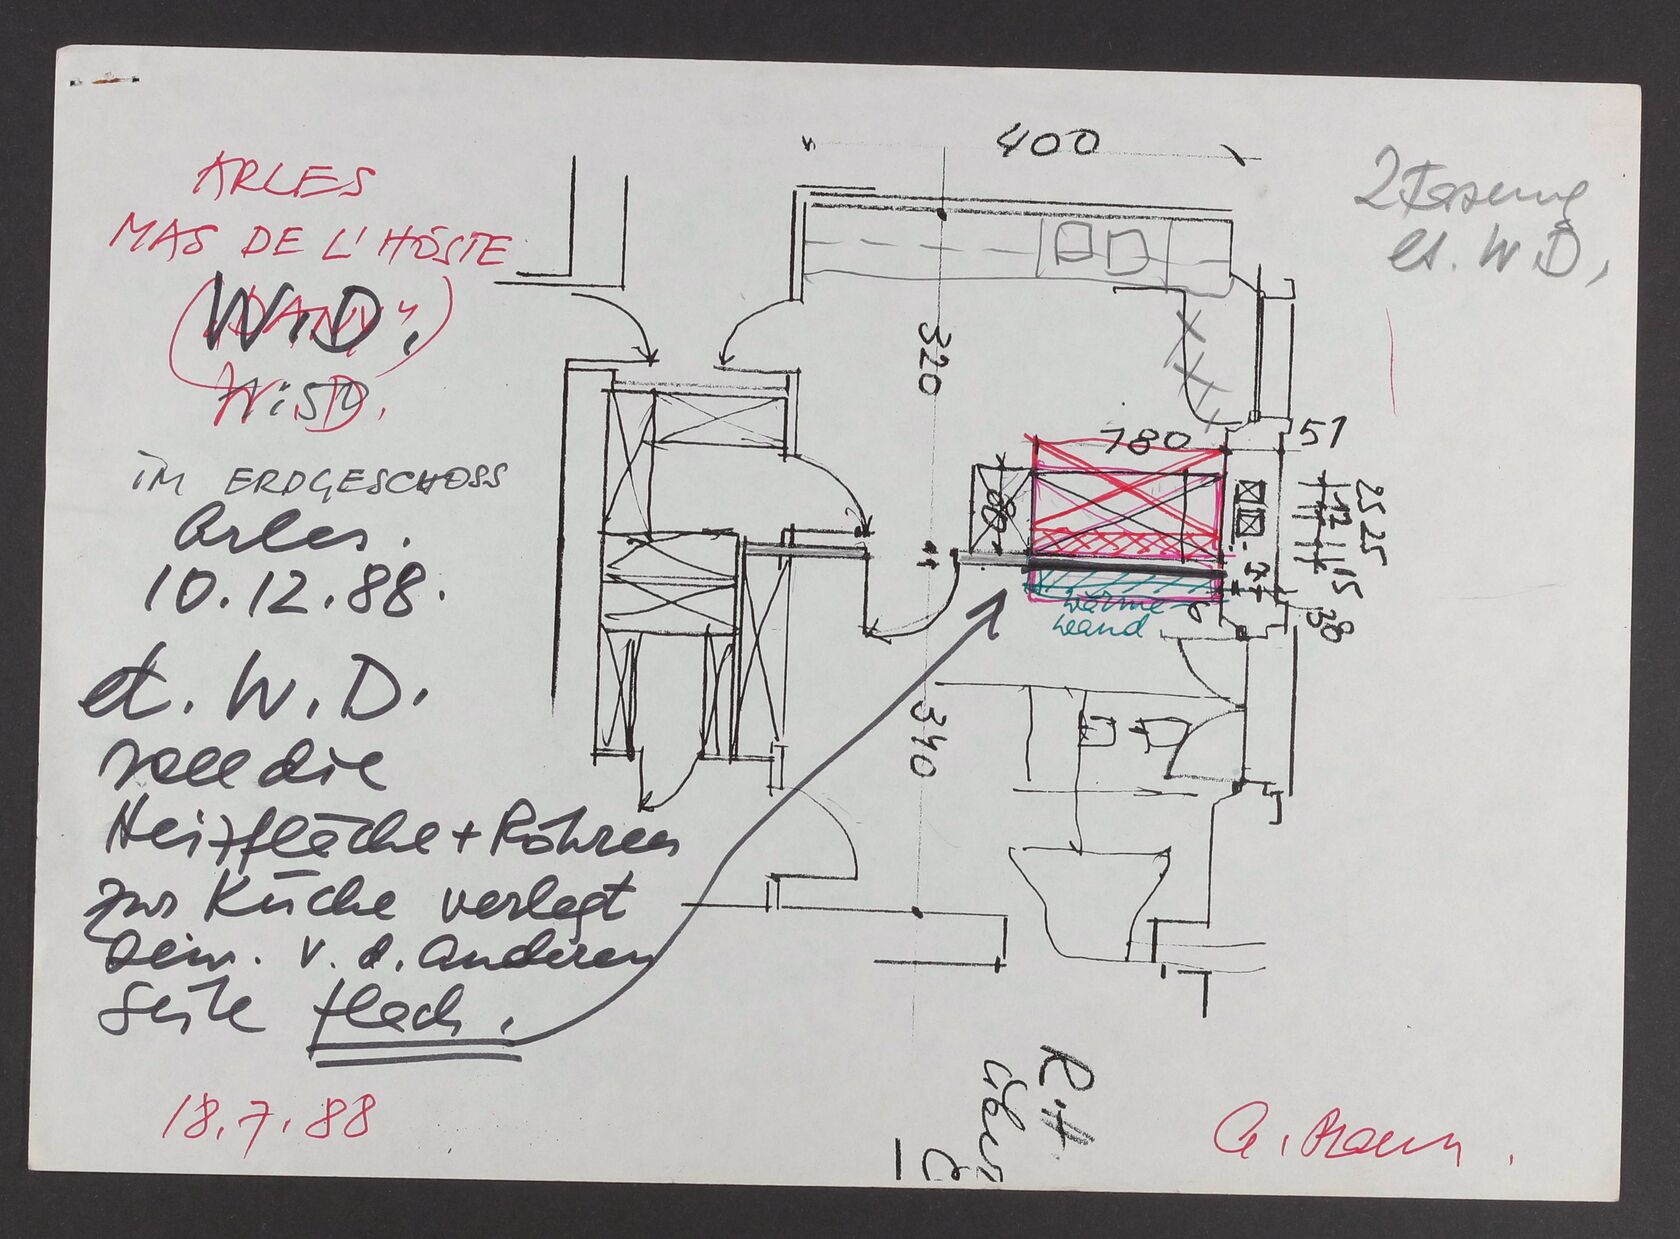 ARLES
MAS DE L' HÔSTE
W.D.
W.D.
IM ERDGESCHOSS
Arles.
10.12.88.
et. W.D.
soll die
Heizfläche + Röhren
zur Küche verlegt
sein. v. d. anderen
Seite flach.
18.7.88
400
2 Fassung
et. W.D.
320
180
51
60
25 25
12
15
38
wärme
wand
340
über